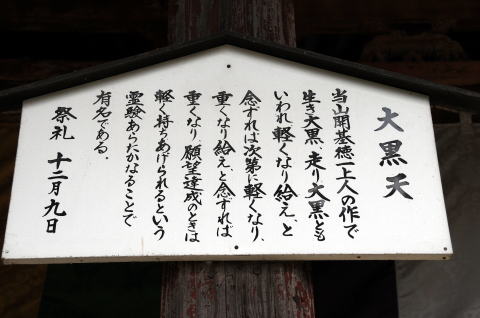 大黒天
当山開基徳一上人の作で
生き大黒、走り大黒とも
いわれ軽くなり給え、と
念ずれば次第に軽くなり、
重くなり給え、と念ずれば
重くなり願望達成のときは
軽く持ちあげられるという
霊験あらたかなることで
有名である。
祭礼 十二月九日